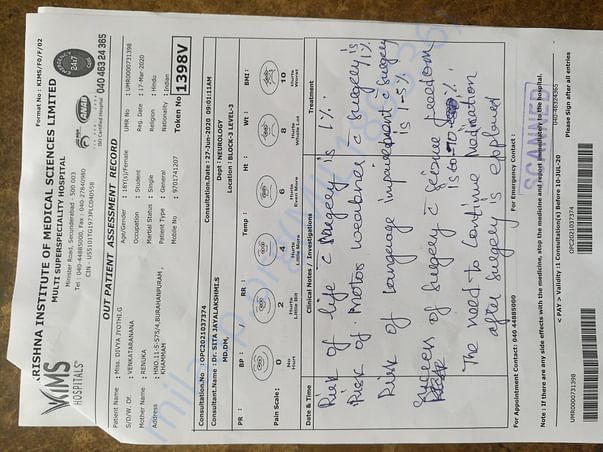 Format No : KIMS/FO/F/02
KRISHNA INSTITUTE OF MEDICAL SCIENCES LIMITED
MULTI SUPERSPECIALITY HOSPITAL
Minister Road, Secunderabad - 500 003
Tel : 040-44885000, Fax : 040-27840980
CIN - U55101TG1973PLC040558
KIMS
HOSPITALS
24x7
ISO Certified Hospital
040 463 24 365
OUT PATIENT ASSESSMENT RECORD
Patient Name : Miss. DIVYA JYOTHI.G
Age/Gender : 18Y(s)/Female
UMR No : UMR0000731398
S/D/W. Of. : VENKATARANANA
Occupation : Student
Reg. Date : 17-Mar-2020
Mother Name : RENUKA
Marital Status : Single
Religion : Hindu
Address : HNO.11-5-575/4,BURAHANPURAM,
KHAMMAM,
Patient Type : General
Nationality : Indian
Mobile No : 9701741207
Token No 1398V
Consultation.No : OPC2021037374
Consultation.Date : 27-Jun-2020 09:01:11AM
Consultant.Name : Dr. SITA JAYALAKSHMI.S
Dept : NEUROLOGY
MD,DM,
Location : BLOCK-3 LEVEL-3
PR : BP : / RR : Temp : Ht : Wt : BMI :
Pain Scale :
0 2 4 6 8 10
No Hurt
Hurts Little Bit
Hurts Little More
Hurts Even More
Hurts Whole Lot
Hurts Worst
Date & Time Clinical Notes / Investigations Treatment
Risk of life c surgery is 1%.
Risk of Motor weakness c surgery is 1%
Risk of language impairement c surgery is 1-5%
Success of surgery c seizure freedom is
The need to continue medication
after surgery is explained
For Appointment Contact: 040 44885000
For Emergency Contact :
SCANNED
040-46324365
Note : If there are any side effects with the medicine, stop the medicine and report immediately to the hospital.
< PAY > Validity :1 Consultation(s) before 10-JUL-20
Please Sign after at entries
UMR0000731398
OPC2021037374